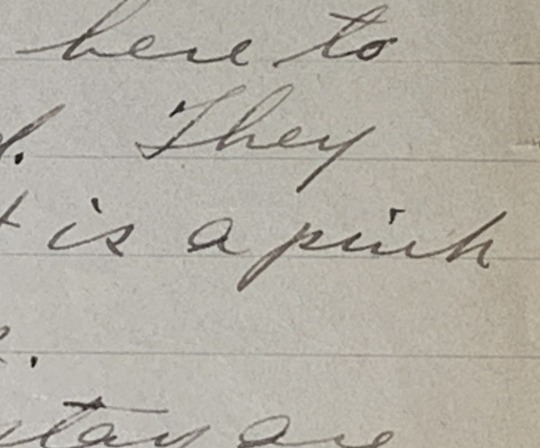 here to
. They
is a pink
.
stay are